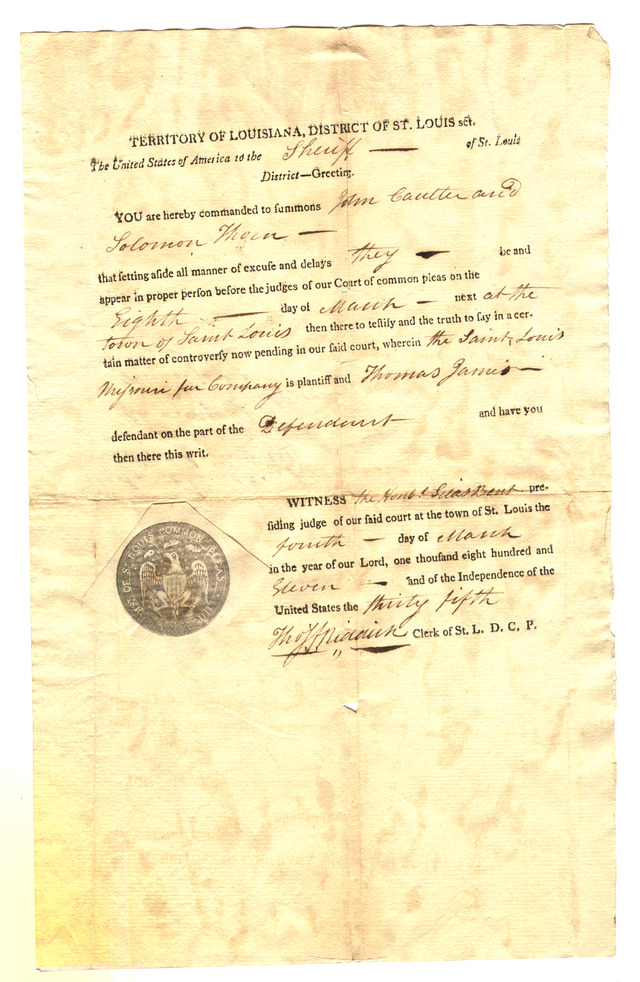 TERRITORY OF LOUISIANA, DISTRICT OF ST. LOUIS sct.
The United States of America to the Sheriff — of St. Louis
District—Greeting.
YOU are hereby commanded to summons John Caulter and
Solomon Thorn —
that setting aside all manner of excuse and delays they — be and
appear in proper person before the judges of our Court of common pleas on the
Eighth — day of March — next at the
town of Saint Louis then there to testify and the truth to say in a cer-
tain matter of controversy now pending in our said court, wherein the Saint Louis
Missouri fur Company is plantiff and Thomas James —
defendant on the part of the Defendant and have you
then there this writ.
WITNESS the Honbl Silas Bent pre-
siding judge of our said court at the town of St. Louis the
fourth — day of March
in the year of our Lord, one thousand eight hundred and
Eleven — and of the Independence of the
United States the thirty fifth
Thos F Riddick Clerk of St. L. D. C. P.
DIST. OF ST. LOUIS COMMON PLEAS